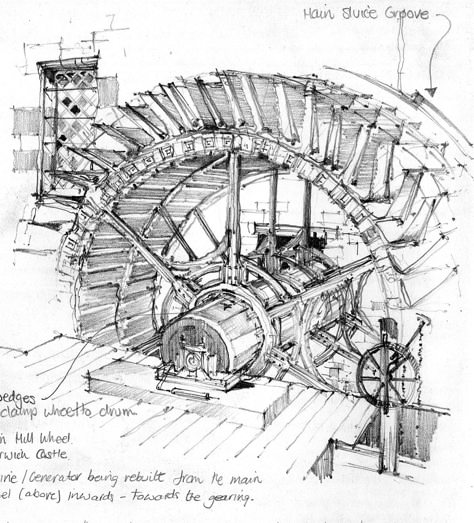 Main Sluice Groove
edges
clamp wheel to drum
n Mill Wheel
rwick Castle
ine / Generator being rebuilt from the main
el (above) inwards - towards the gearing.